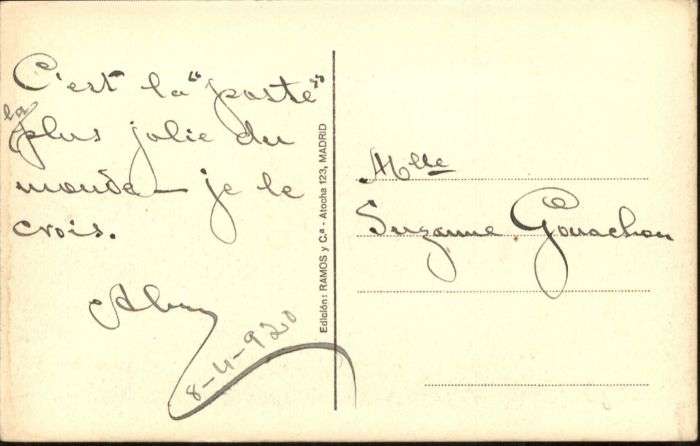 C'est la "poste"
la
plus jolie du
monde — je le
crois.
8-4-920
Edición: RAMOS y C.ª - Atocha 123, MADRID
Mlle
Suzanne Gouachon